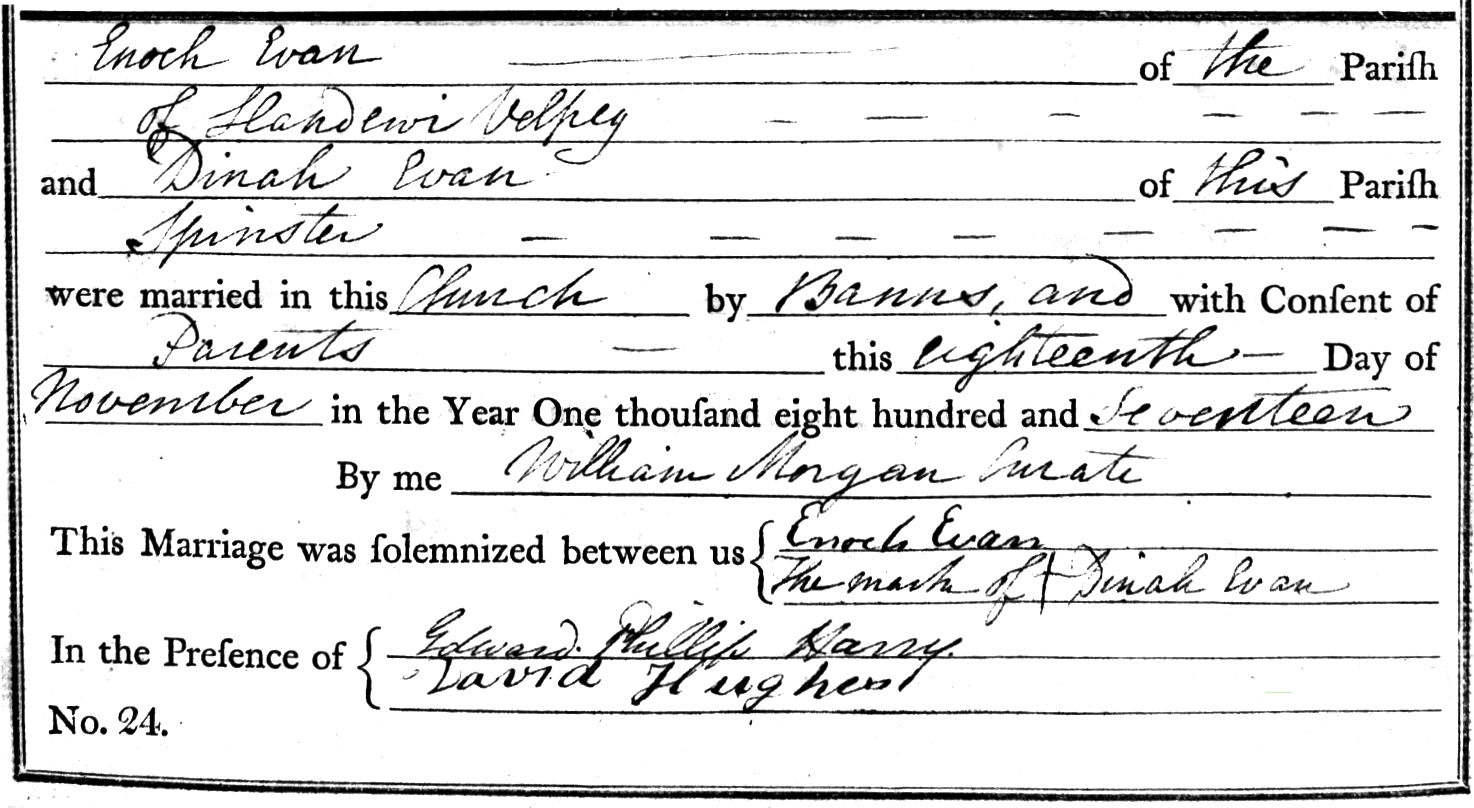 Enoch Evan — — of the Pariſh
of Llandewi Velpey — — — — — —
and Dinah Evan of this Pariſh
Spinster — — — — — — — —
were married in this Church by Banns, and with Conſent of
Parents — this eighteenth — Day of
November in the Year One thouſand eight hundred and Seventeen
By me William Morgan Curate
This Marriage was ſolemnized between us { Enoch Evan
The mark of + Dinah Evan
In the Preſence of { Edward Phillip Harry.
David Hughes
No. 24.